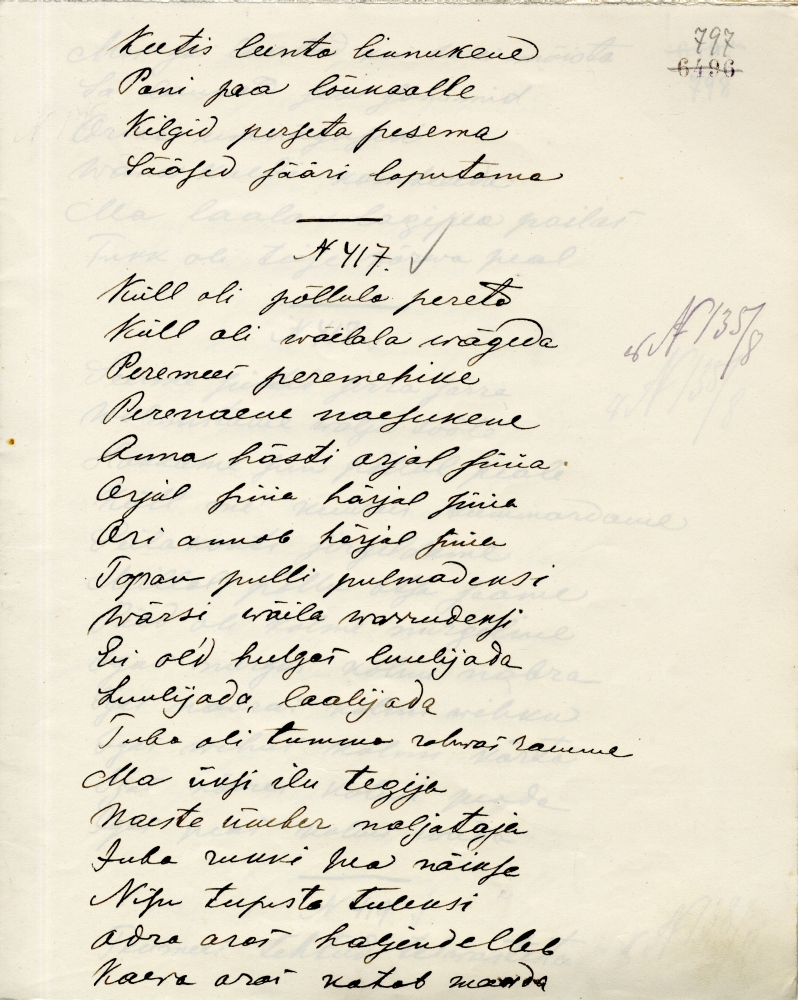 797
6496
Keetis leento linnukene
Pani paa lõunaalle
Kilgid perseta pesema
Sääsed sääri loputama
N 417.
Küll oli põllula pereta
Küll oli wäilala wägeda
N 135/8
Peremees peremehike
Perenaene naesukene
Anna hästi orjal süüa
Orjal süüa härjal süüa
Ori annab härjal süüa
Tapan pulli pulmadeksi
Wärsi wäila warrudeksi
Ei old hulgas luulijada
Luulijada, laalijada
Tuba oli tumma rahwas ramme
Ma üksi ilu tegija
Naeste ümber naljataja
Juba rukki pea näikse
Nisu tupista tuleksi
Adra aras haljendelleb
Kaera aras katab maada